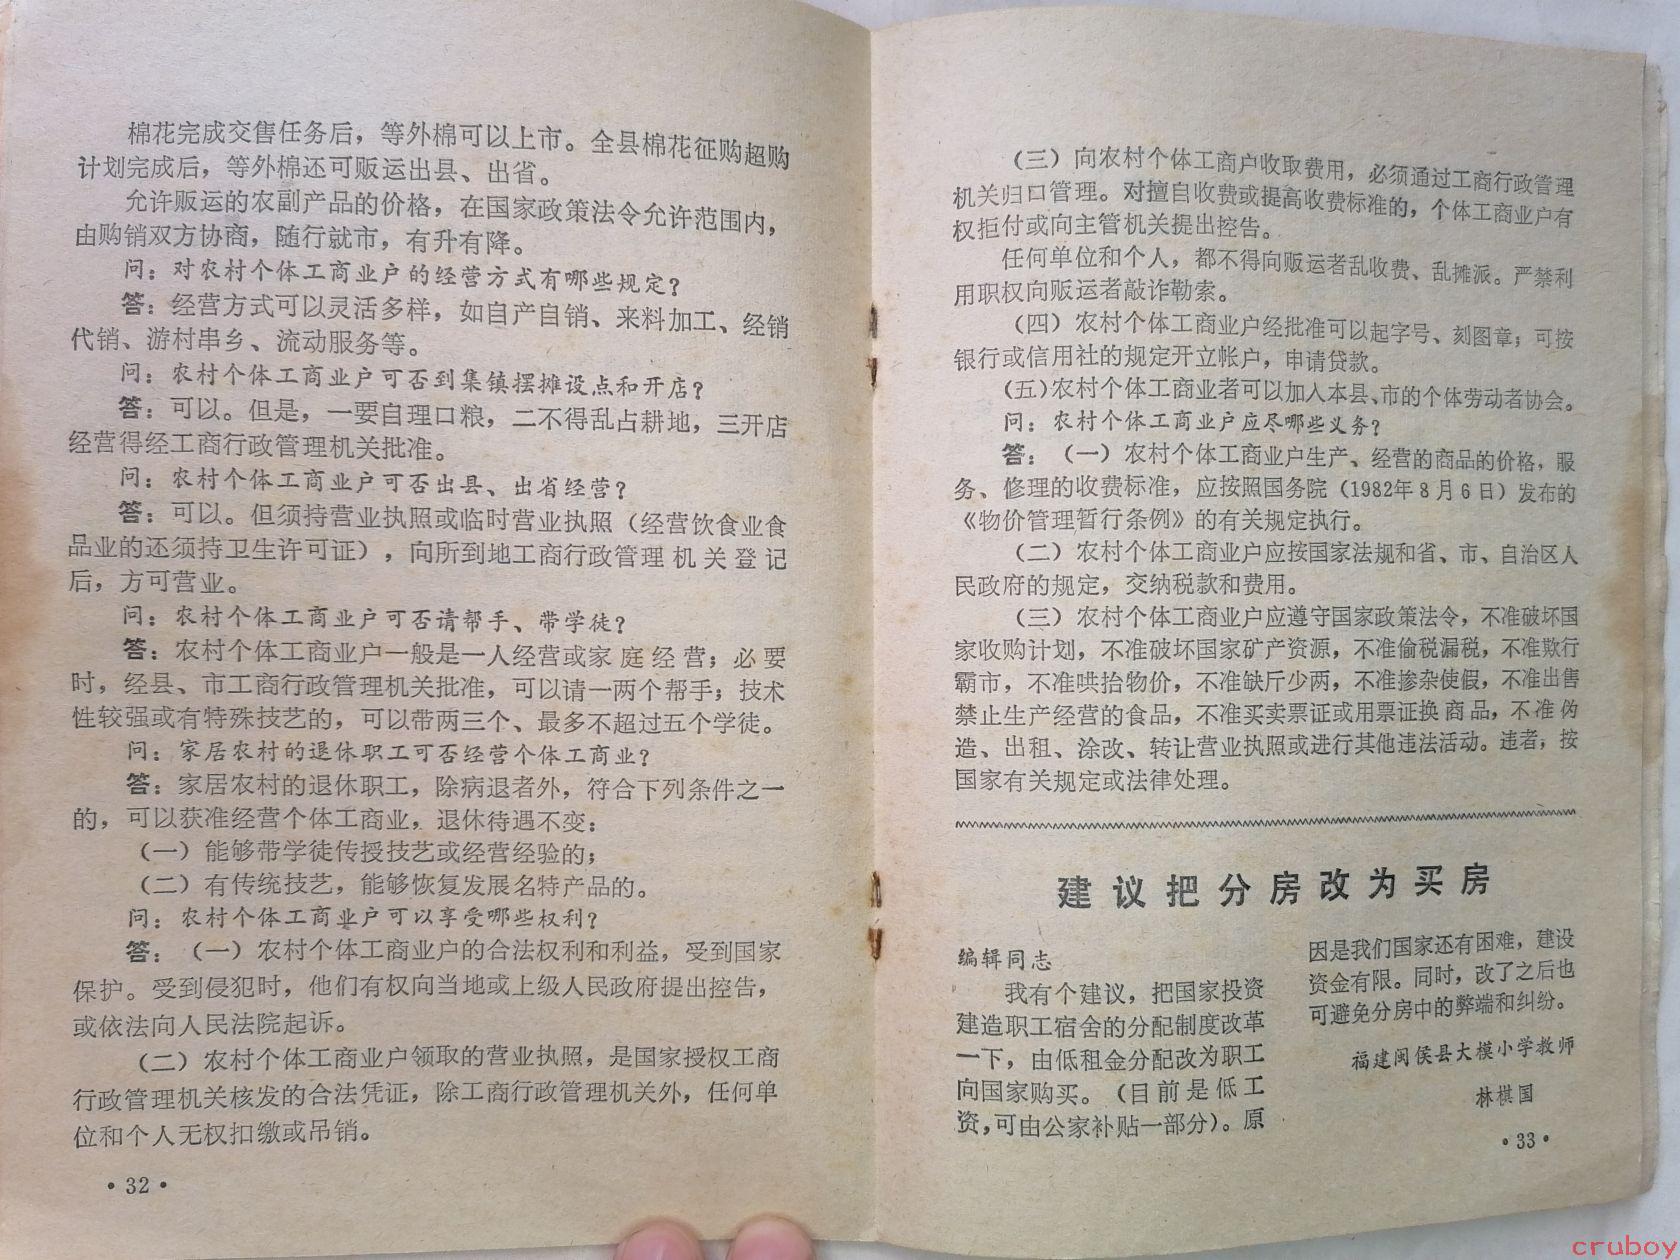 棉花完成交售任务后，等外棉可以上市。全县棉花征购超购
计划完成后，等外棉还可贩运出县、出省。
允许贩运的农副产品的价格，在国家政策法令允许范围内，
由购销双方协商，随行就市，有升有降。
问：对农村个体工商业户的经营方式有哪些规定？
答：经营方式可以灵活多样，如自产自销、来料加工、经销
代销、游村串乡、流动服务等。
问：农村个体工商业户可否到集镇摆摊设点和开店？
答：可以。但是，一要自理口粮，二不得乱占耕地，三开店
经营得经工商行政管理机关批准。
问：农村个体工商业户可否出县、出省经营？
答：可以。但须持营业执照或临时营业执照（经营饮食业食
品业的还须持卫生许可证），向所到地工商行政管理机关登记
后，方可营业。
问：农村个体工商业户可否请帮手、带学徒？
答：农村个体工商业户一般是一人经营或家庭经营；必要
时，经县、市工商行政管理机关批准，可以请一两个帮手；技术
性较强或有特殊技艺的，可以带两三个、最多不超过五个学徒。
问：家居农村的退休职工可否经营个体工商业？
答：家居农村的退休职工，除病退者外，符合下列条件之一
的，可以获准经营个体工商业，退休待遇不变：
（一）能够带学徒传授技艺或经营经验的；
（二）有传统技艺，能够恢复发展名特产品的。
问：农村个体工商业户可以享受哪些权利？
答：（一）农村个体工商业户的合法权利和利益，受到国家
保护。受到侵犯时，他们有权向当地或上级人民政府提出控告，
或依法向人民法院起诉。
（二）农村个体工商业户领取的营业执照，是国家授权工商
行政管理机关核发的合法凭证，除工商行政管理机关外，任何单
位和个人无权扣缴或吊销。
•32•
（三）向农村个体工商户收取费用，必须通过工商行政管理
机关归口管理。对擅自收费或提高收费标准的，个体工商业户有
权拒付或向主管机关提出控告。
任何单位和个人，都不得向贩运者乱收费、乱摊派。严禁利
用职权向贩运者敲诈勒索。
（四）农村个体工商业户经批准可以起字号、刻图章；可按
银行或信用社的规定开立帐户，申请贷款。
（五）农村个体工商业者可以加入本县、市的个体劳动者协会。
问：农村个体工商业户应尽哪些义务？
答：（一）农村个体工商业户生产、经营的商品的价格，服
务、修理的收费标准，应按照国务院（1982年8月6日）发布的
《物价管理暂行条例》的有关规定执行。
（二）农村个体工商业户应按国家法规和省、市、自治区人
民政府的规定，交纳税款和费用。
（三）农村个体工商业户应遵守国家政策法令，不准破坏国
家收购计划，不准破坏国家矿产资源，不准偷税漏税，不准欺行
霸市，不准哄抬物价，不准缺斤少两，不准掺杂使假，不准出售
禁止生产经营的食品，不准买卖票证或用票证换商品，不准伪
造、出租、涂改、转让营业执照或进行其他违法活动。违者，按
国家有关规定或法律处理。
建议把分房改为买房
编辑同志
我有个建议，把国家投资
建造职工宿舍的分配制度改革
一下，由低租金分配改为职工
向国家购买。（目前是低工
资，可由公家补贴一部分）。原
因是我们国家还有困难，建设
资金有限。同时，改了之后也
可避免分房中的弊端和纠纷。
福建闽侯县大模小学教师
林棋国
•33•
cruboy